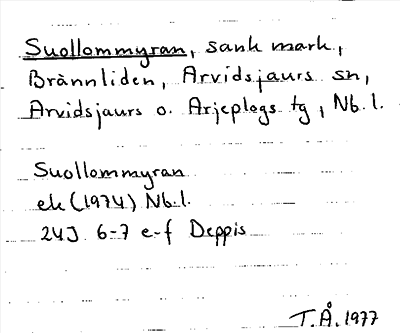 Suollommyran, sank mark,
Brännliden, Arvidsjaurs sn,
Arvidsjaurs o. Arjeplogs tg, Nb. l.
Suollommyran
ek (1974) Nb. l.
24J 6-7 e-f Deppis
T.Å. 1977